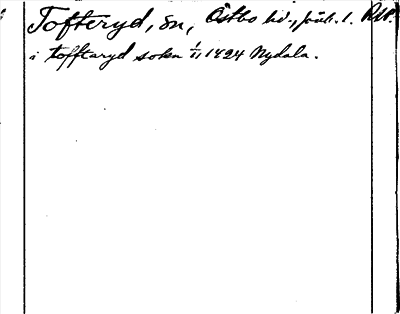 Tofteryd, sn, Östbo hd., Jönk. l. RAP.
i tofftaryd soken 1/11 1424 Nydala.